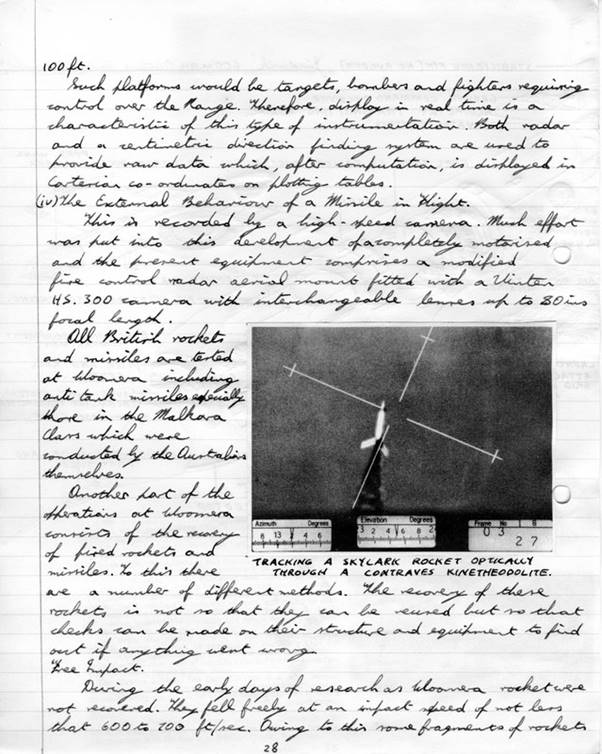 100 ft.
Such platforms would be targets, bombers and fighters requiring
control over the Range. Therefore, display in real time is a
characteristic of this type of instrumentation. Both radar
and a centimetric direction finding system are used to
provide raw data which, after computation, is displayed in
Cartesian co-ordinates on plotting tables.
(iv) The External Behaviour of a Missile in Flight.
This is recorded by a high-speed camera. Much effort
was put into this development of a completely motorised
and the present equipment comprises a modified
fire control radar aerial mount fitted with a Vinten
HS. 300 camera with interchangeable lenses up to 80 ins
focal length.
All British rockets
and missiles are tested
at Woomera including
anti tank missiles especially
those in the Malkara
Class which were
conducted by the Australians
themselves.
Another part of the
operations at Woomera
consists of the recovery
of fired rockets and
missiles. To this there
are a number of different methods. The recovery of these
rockets is not so that they can be reused but so that
checks can be made on their structure and equipment to find
out if anything went wrong.
Free Impact.
During the early days of research at Woomera rocket were
not recovered. They fell freely at an impact speed of not less
that 600 to 700 ft/sec. Owing to this some fragments of rockets
28
Azimuth Degrees
8 13 2 4 6
Elevation Degrees
3 2 4 6 8 2
0 3
2 7
TRACKING A SKYLARK ROCKET OPTICALLY
THROUGH A CONTRAVES KINETHEODOLITE.